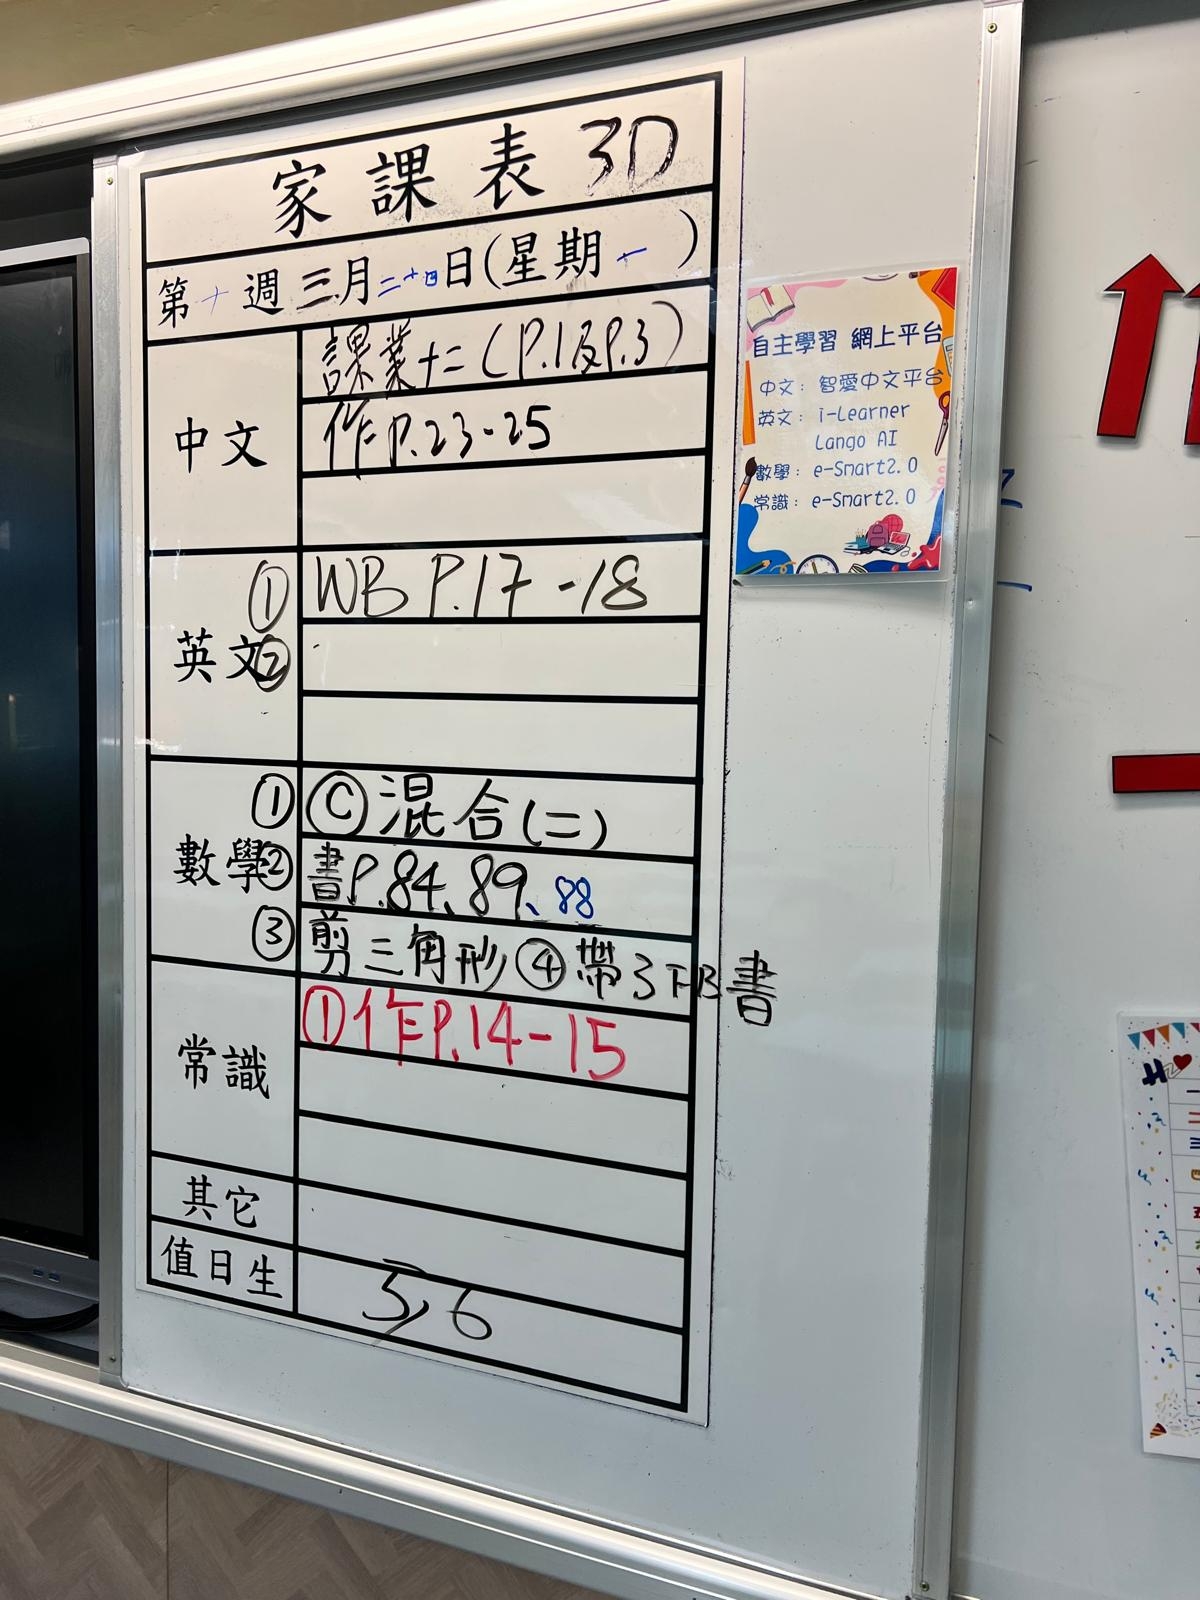 家課表 3D
第十週三月二十四日(星期一)
中文
課業十二(P.1及P.3)
作P.23-25
英文
① WB P.17-18
②
數學
① Ⓒ混合(二)
② 書P.84、89、88
③ 剪三角形 ④帶3下B書
常識
①作P.14-15
其它
值日生
5,6
自主學習 網上平台
中文：智愛中文平台
英文：i-Learner
Lango AI
數學：e-Smart2.0
常識：e-Smart2.0